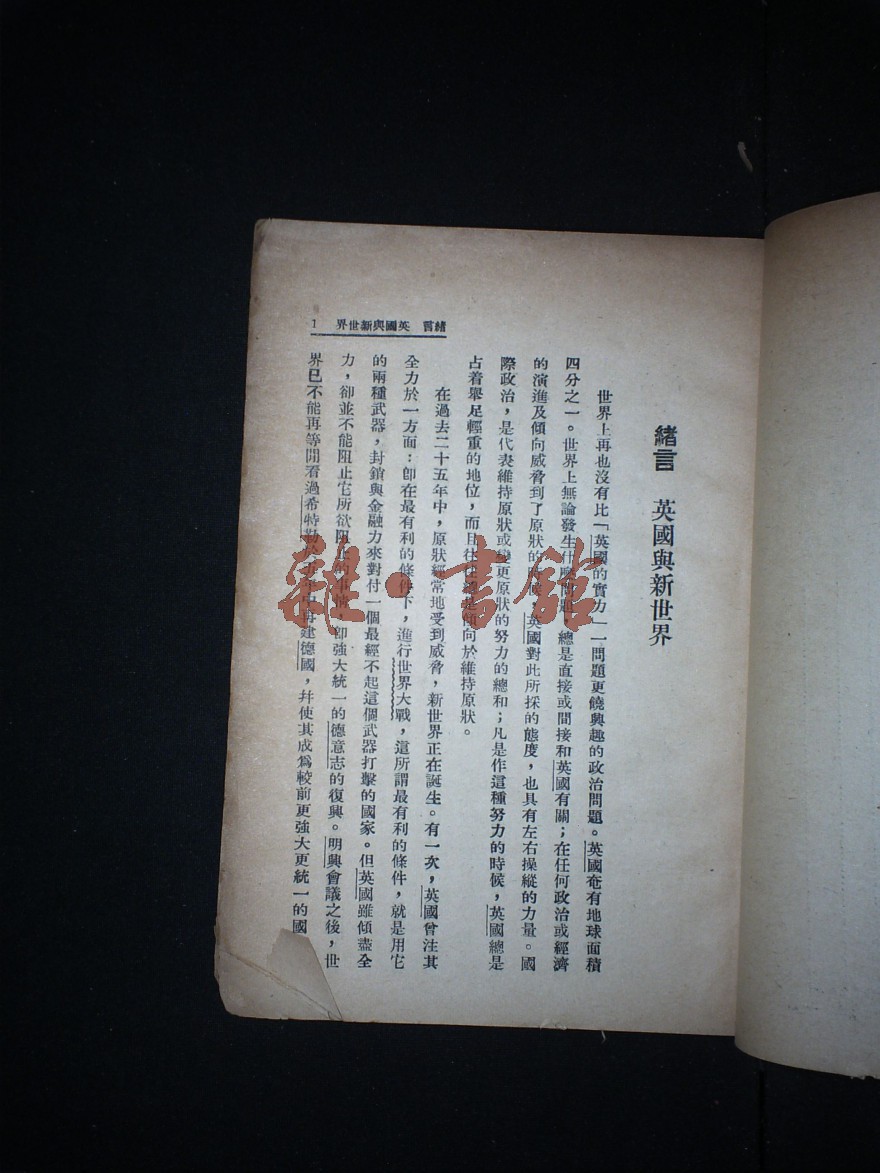 緒言 英國與新世界 1
緒言 英國與新世界
世界上再也沒有比「英國的實力」一問題更饒興趣的政治問題。英國奄有地球面積
四分之一。世界上無論發生什麼問題，總是直接或間接和英國有關；在任何政治或經濟
的演進及傾向威脅到了原狀的時候，英國對此所採的態度，也具有左右操縱的力量。國
際政治，是代表維持原狀或變更原狀的努力的總和；凡是作這種努力的時候，英國總是
占着舉足輕重的地位，而且往往總是傾向於維持原狀。
在過去二十五年中，原狀經常地受到威脅，新世界正在誕生。有一次，英國曾注其
全力於一方面：卽在最有利的條件下，進行世界大戰，這所謂最有利的條件，就是用它
的兩種武器，封鎖與金融力來對付一個最經不起這個武器打擊的國家。但英國雖傾盡全
力，卻並不能阻止它所欲阻止的事情，卽強大統一的德意志的復興。明興會議之後，世
界已不能再等閒看過希特勒於五年中再建德國，幷使其成爲較前更強大更統一的國
雜·書館